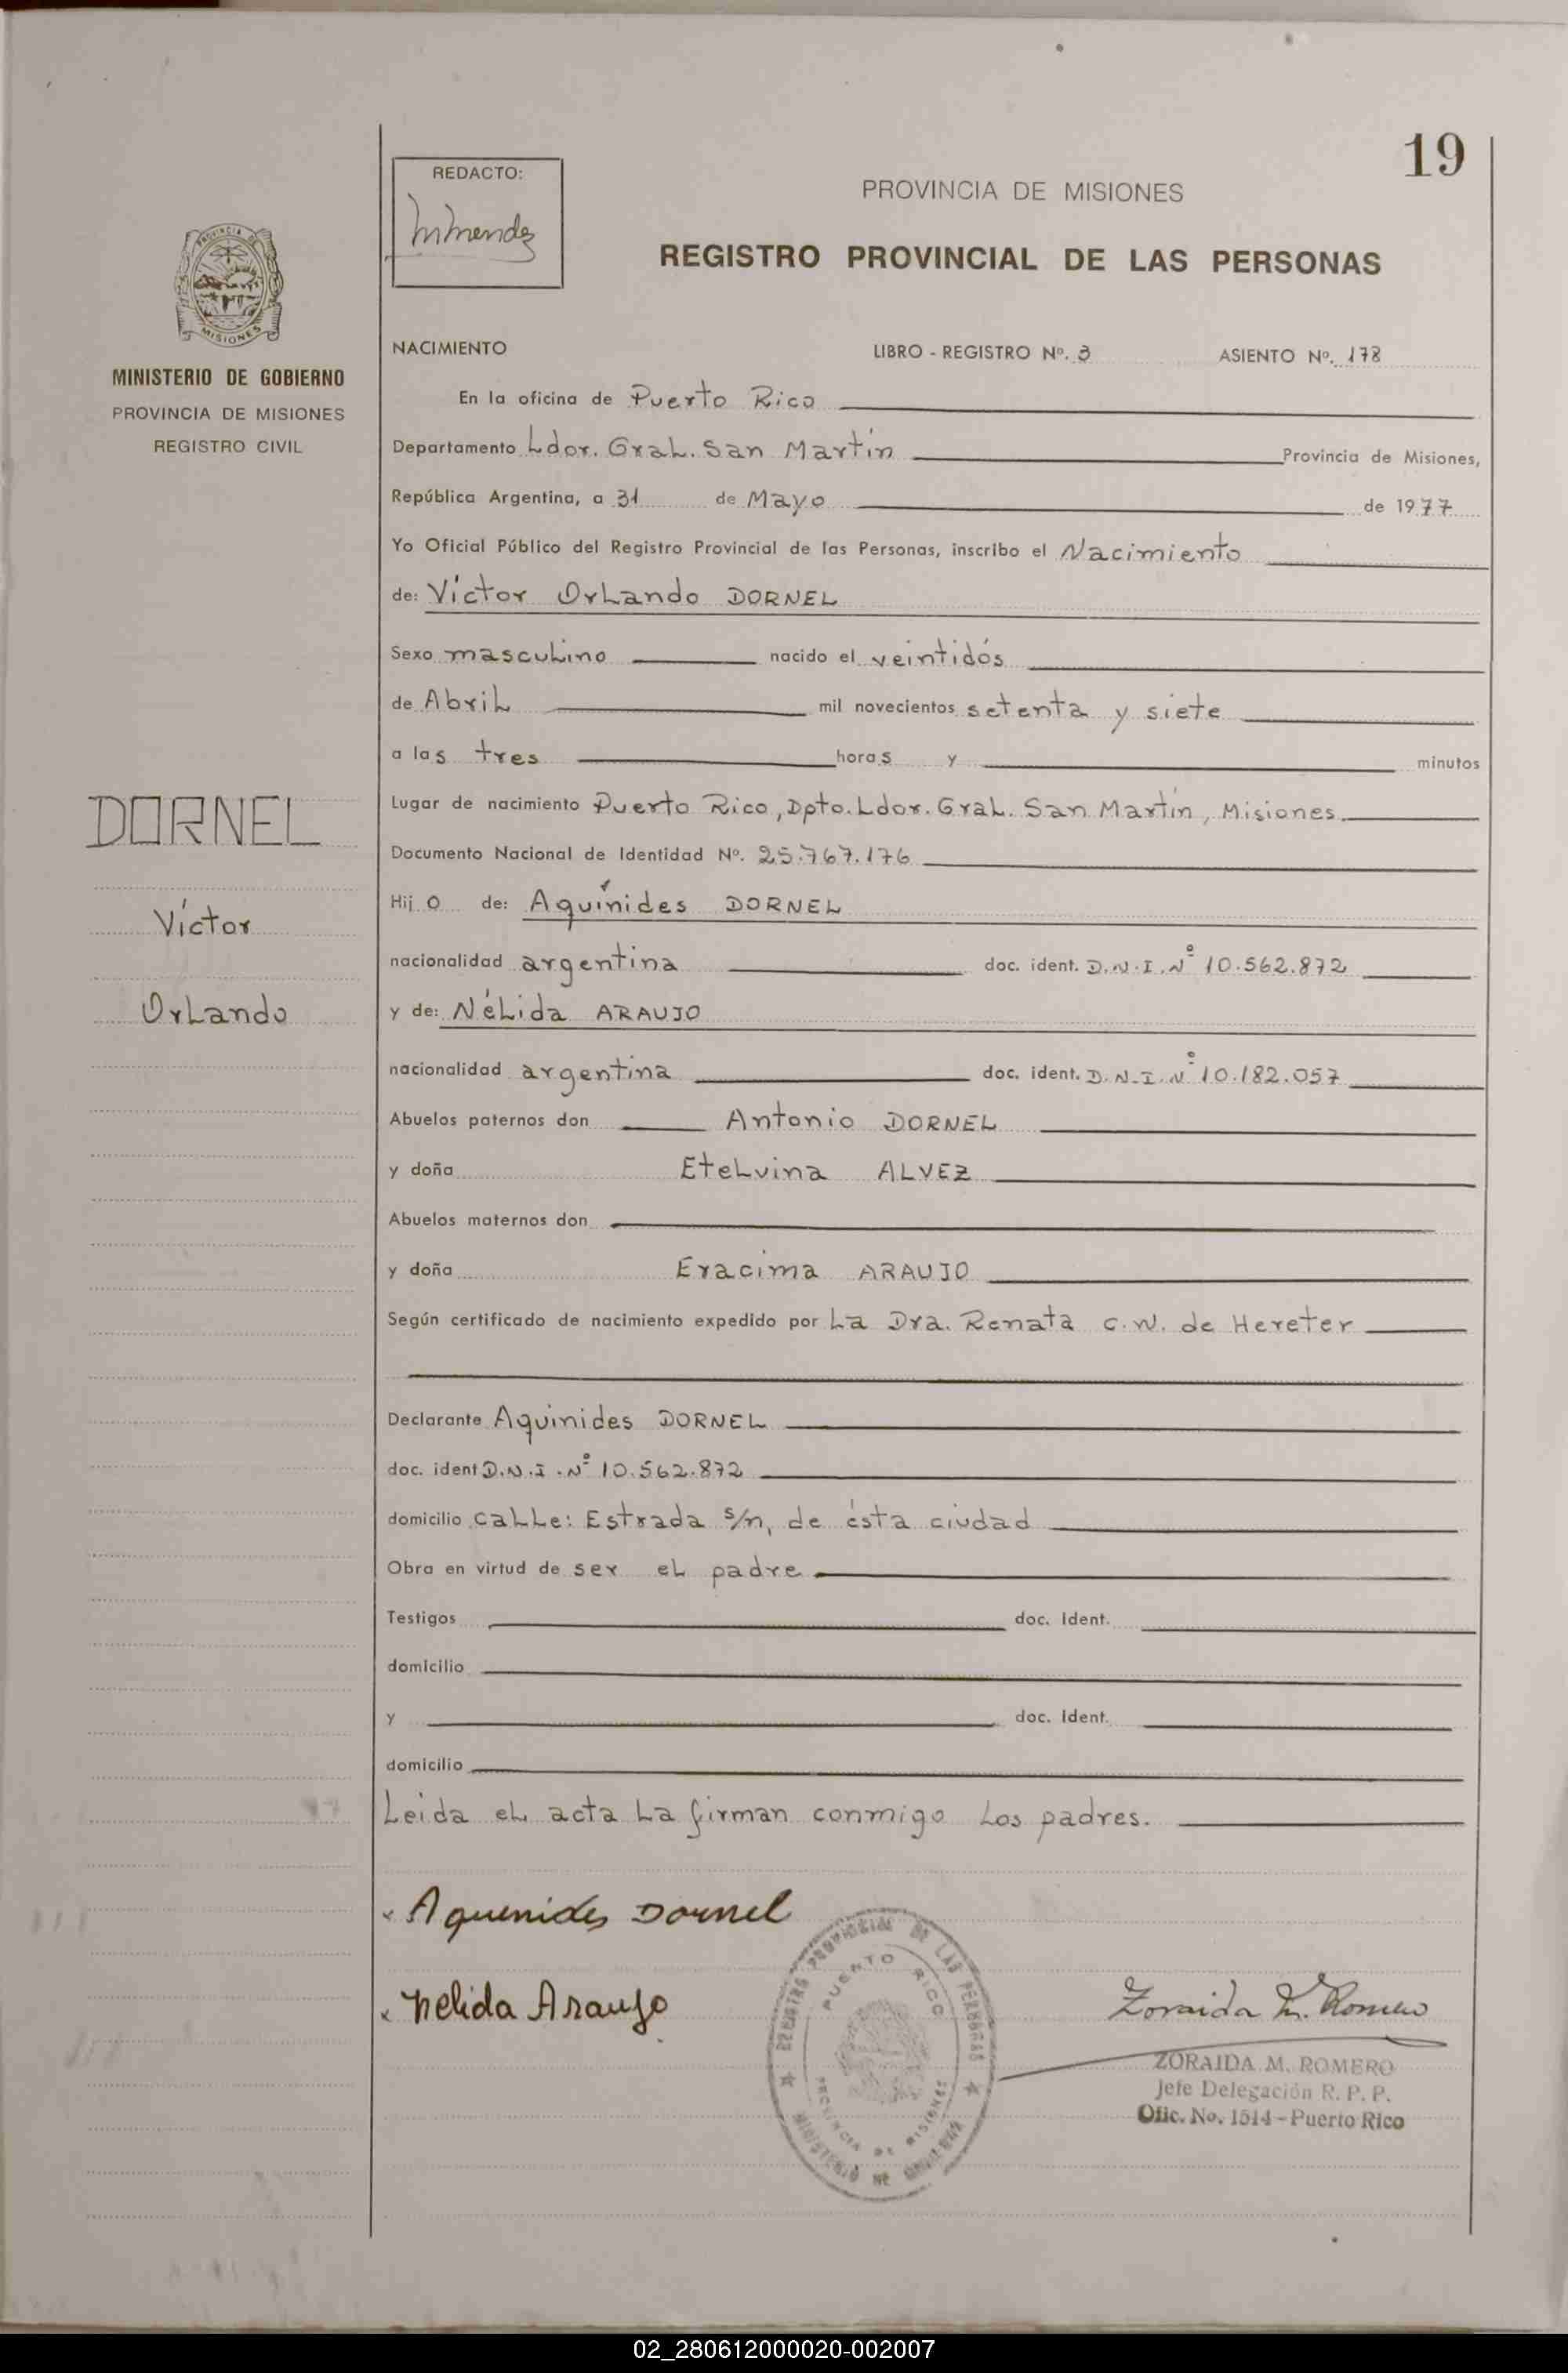 19
REDACTO:
PROVINCIA DE MISIONES
REGISTRO PROVINCIAL DE LAS PERSONAS
PROVINCIA DE
MISIONES
MINISTERIO DE GOBIERNO
PROVINCIA DE MISIONES
REGISTRO CIVIL
NACIMIENTO LIBRO - REGISTRO Nº. 3 ASIENTO Nº. 178
En la oficina de Puerto Rico
Departamento Ldor. Gral. San Martín Provincia de Misiones,
República Argentina, a 31 de Mayo de 1977
Yo Oficial Público del Registro Provincial de las Personas, inscribo el Nacimiento
de: Víctor Orlando DORNEL
Sexo masculino nacido el veintidós
de Abril mil novecientos setenta y siete
a las tres horas y minutos
Lugar de nacimiento Puerto Rico, Dpto. Ldor. Gral. San Martín, Misiones.
Documento Nacional de Identidad Nº. 25.767.176
Hijo de: Aquínides DORNEL
nacionalidad argentina doc. ident. D.N.I. Nº 10.562.872
y de: Nélida ARAUJO
nacionalidad argentina doc. ident. D.N.I. Nº 10.182.057
Abuelos paternos don Antonio DORNEL
y doña Etelvina ALVEZ
Abuelos maternos don
y doña Eracima ARAUJO
Según certificado de nacimiento expedido por la Dra. Renata C.W. de Hereter
Declarante Aquinides DORNEL
doc. ident D.N.I. Nº 10.562.872
domicilio calle: Estrada s/n, de ésta ciudad
Obra en virtud de ser el padre
Testigos doc. Ident.
domicilio
y doc. Ident.
domicilio
Leida el acta la firman conmigo los padres.
DORNEL
Víctor
Orlando
x Aquenides Dornel
x Nelida Araujo
REGISTRO PROVINCIAL DE LAS PERSONAS
PUERTO RICO
PROVINCIA DE MISIONES
MINISTERIO DE GOBIERNO
Zoraida M. Romero
ZORAIDA M. ROMERO
Jefe Delegación R. P. P.
Ofic. No. 1514 - Puerto Rico
02_280612000020-002007